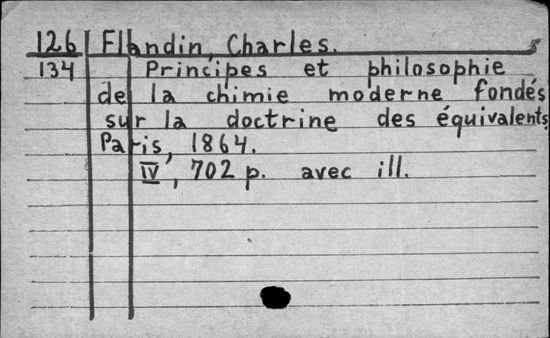 126 Flandin, Charles.
134 Principes et philosophie
de la chimie moderne fondés
sur la doctrine des équivalents
Paris, 1864.
IV, 702 p. avec ill.